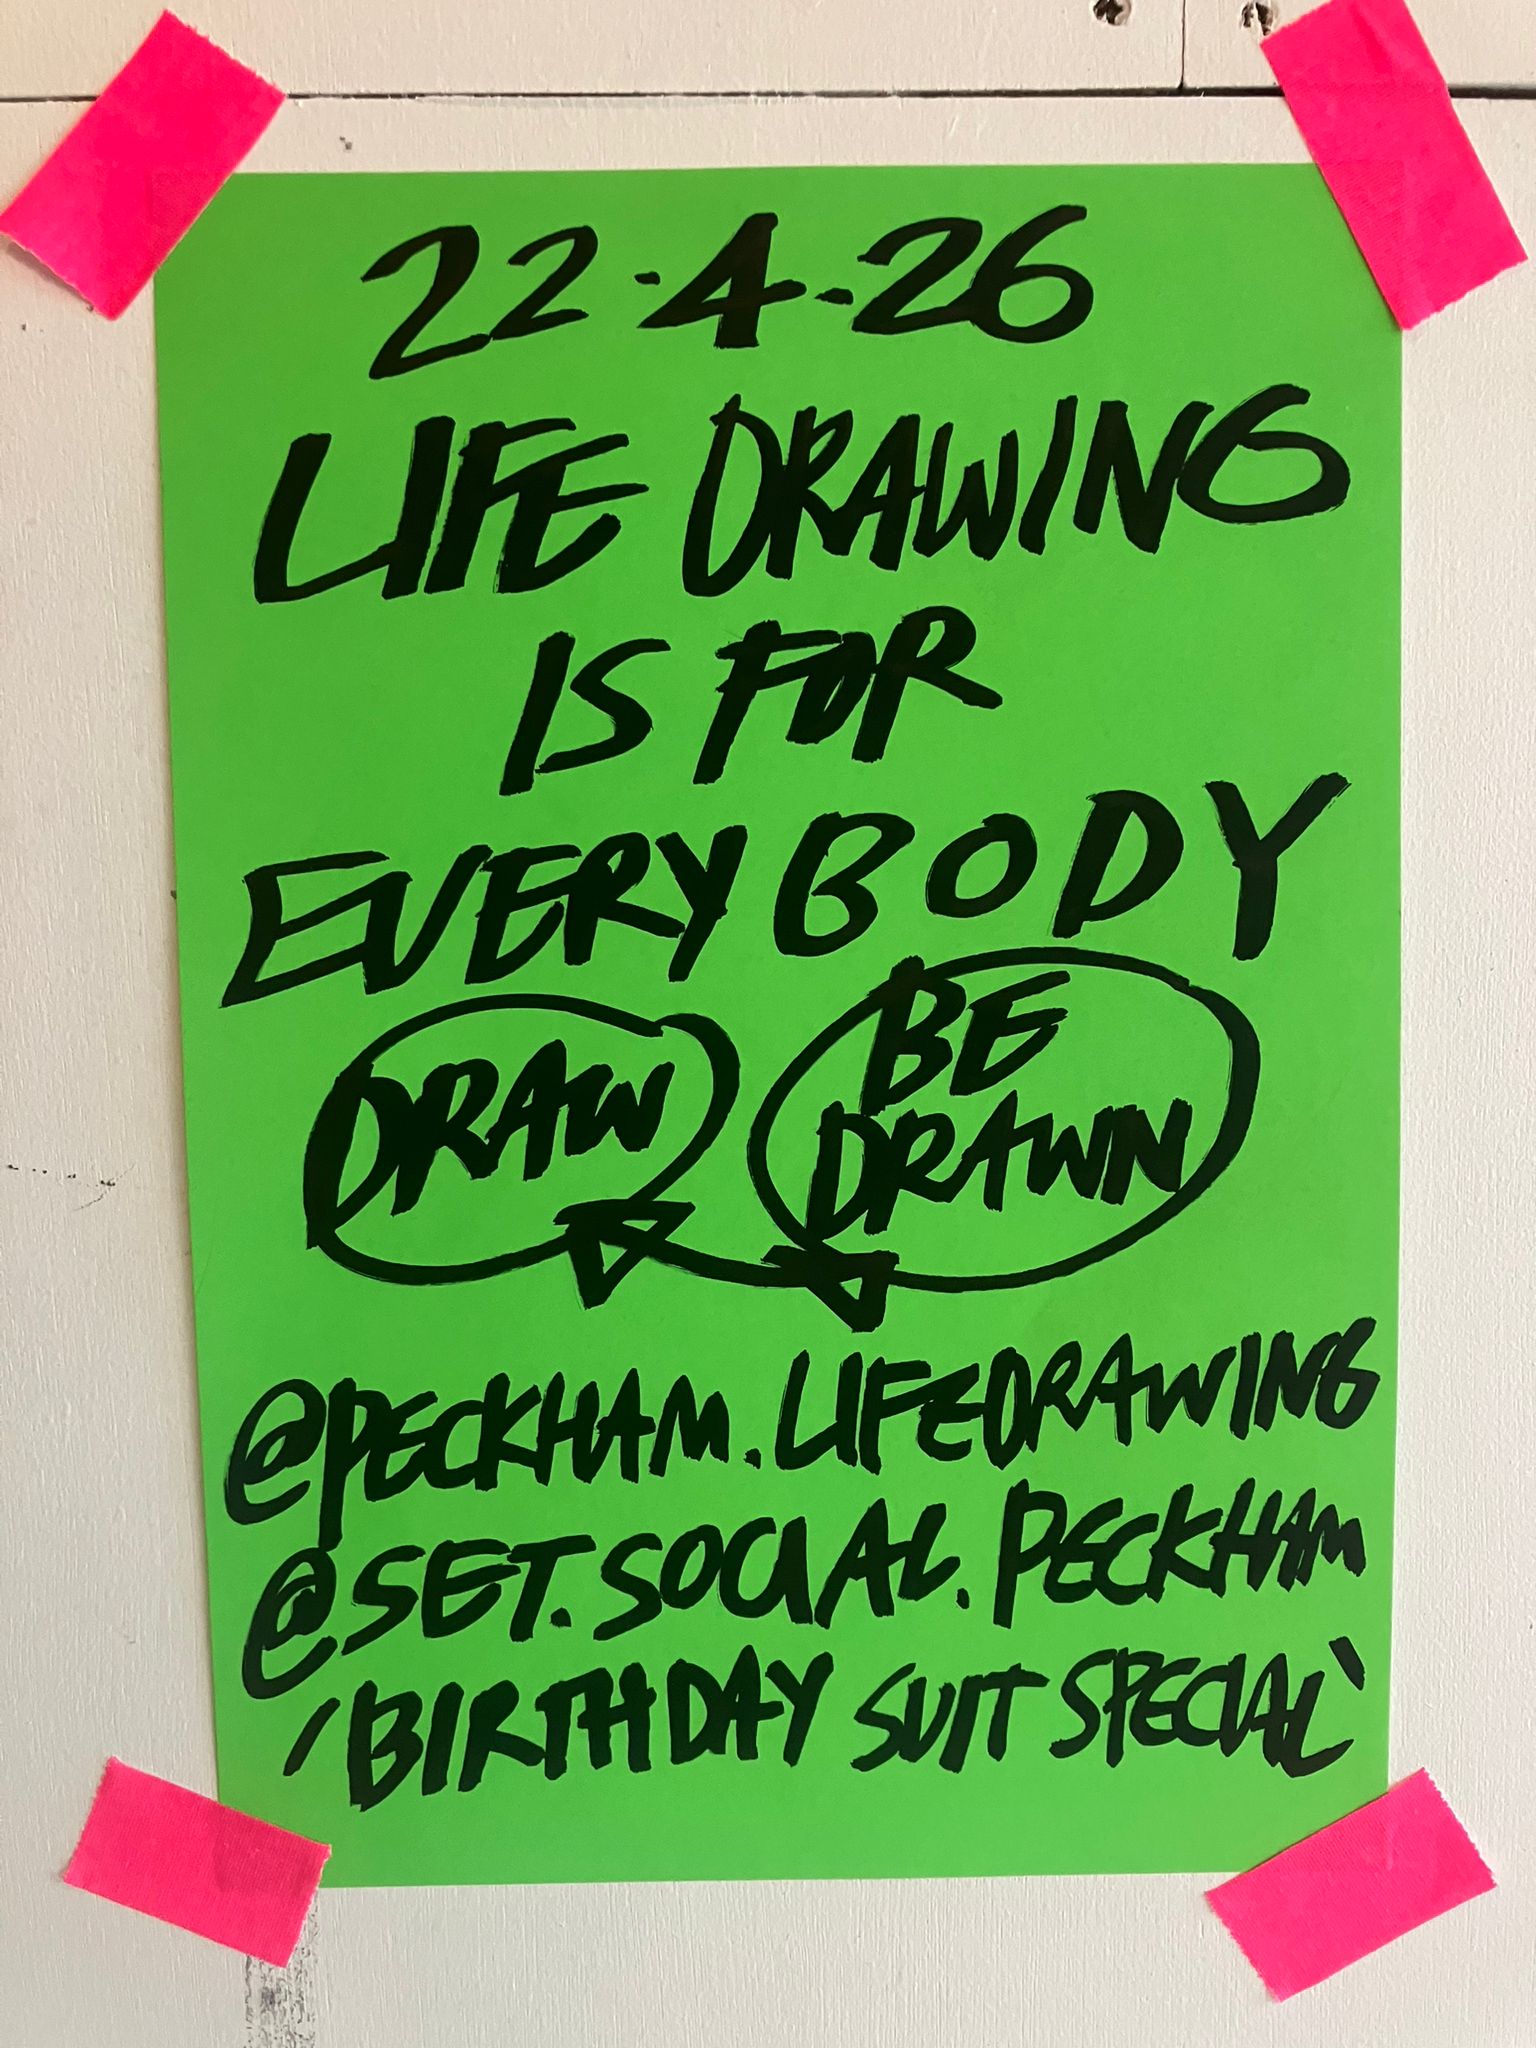 22.4.26
LIFE DRAWING
IS FOR
EVERY BODY
DRAW
BE
DRAWN
@PECKHAM.LIFEDRAWING
@SET.SOCIAL.PECKHAM
'BIRTHDAY SUIT SPECIAL'